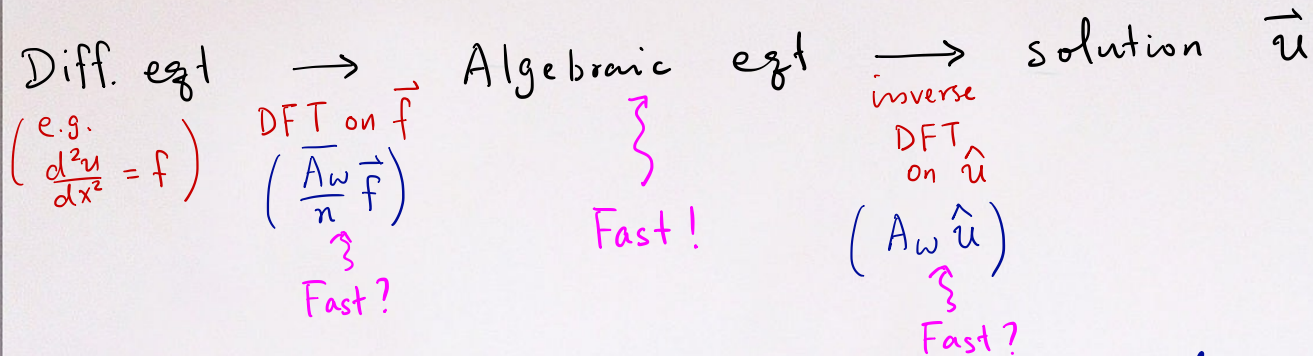 Diff. eqt → Algebraic eqt → solution u⃗
(e.g. d²u/dx² = f)
DFT on f⃗
(A̅w/n f⃗)
Fast?
Fast!
inverse
DFT
on û
(Aw û)
Fast?